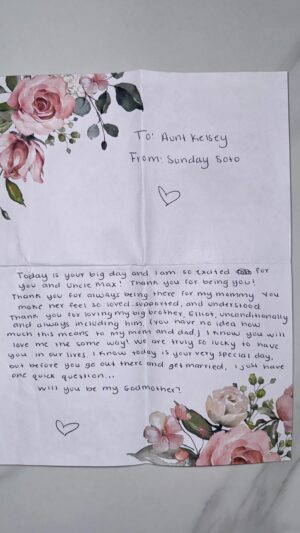 To: Aunt Kelsey
From: Sunday Soto
Today is your big day and I am so excited for
you and Uncle Max! Thank you for being you!
Thank you for always being there for my mommy. You
make her feel so loved, supported, and understood.
Thank you for loving my big brother, Elliot, unconditionally
and always including him (you have no idea how
much this means to my mom and dad.) I know you will
love me the same way! We are truly so lucky to have
you in our lives. I know today is your very special day,
but before you go out there and get married, I just have
one quick question...
Will you be my Godmother?